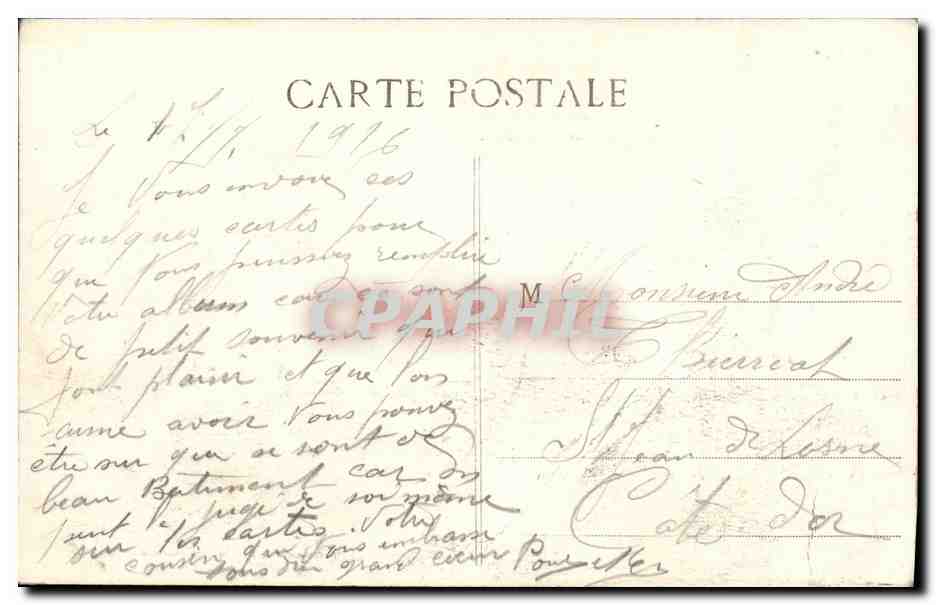 CARTE POSTALE
Le 1916
Je Vous envoie ces
quelques cartes pour
que Vous puissiez remplire
Votre album car ce sont
de petit souvenir qui
font plaisir et que l'on
aime avoir Vous pouvez
être sur que se sont de
beau Batiment car on
peut le jugé soi même
sur les cartes. Votre
cousin qui Vous embrasse
tous d'un grand coeur
M
Monsieur André
Thierriat
St Jean de Losne
Cote d'or
CPAPHIL